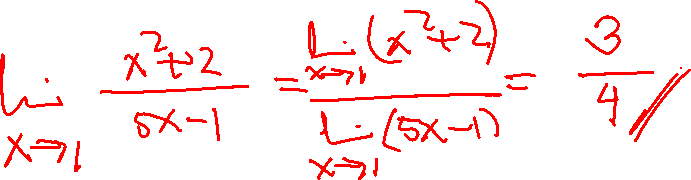 lim x→1 (x²+2)/(5x-1) = lim x→1 (x²+2) / lim x→1 (5x-1) = 3/4